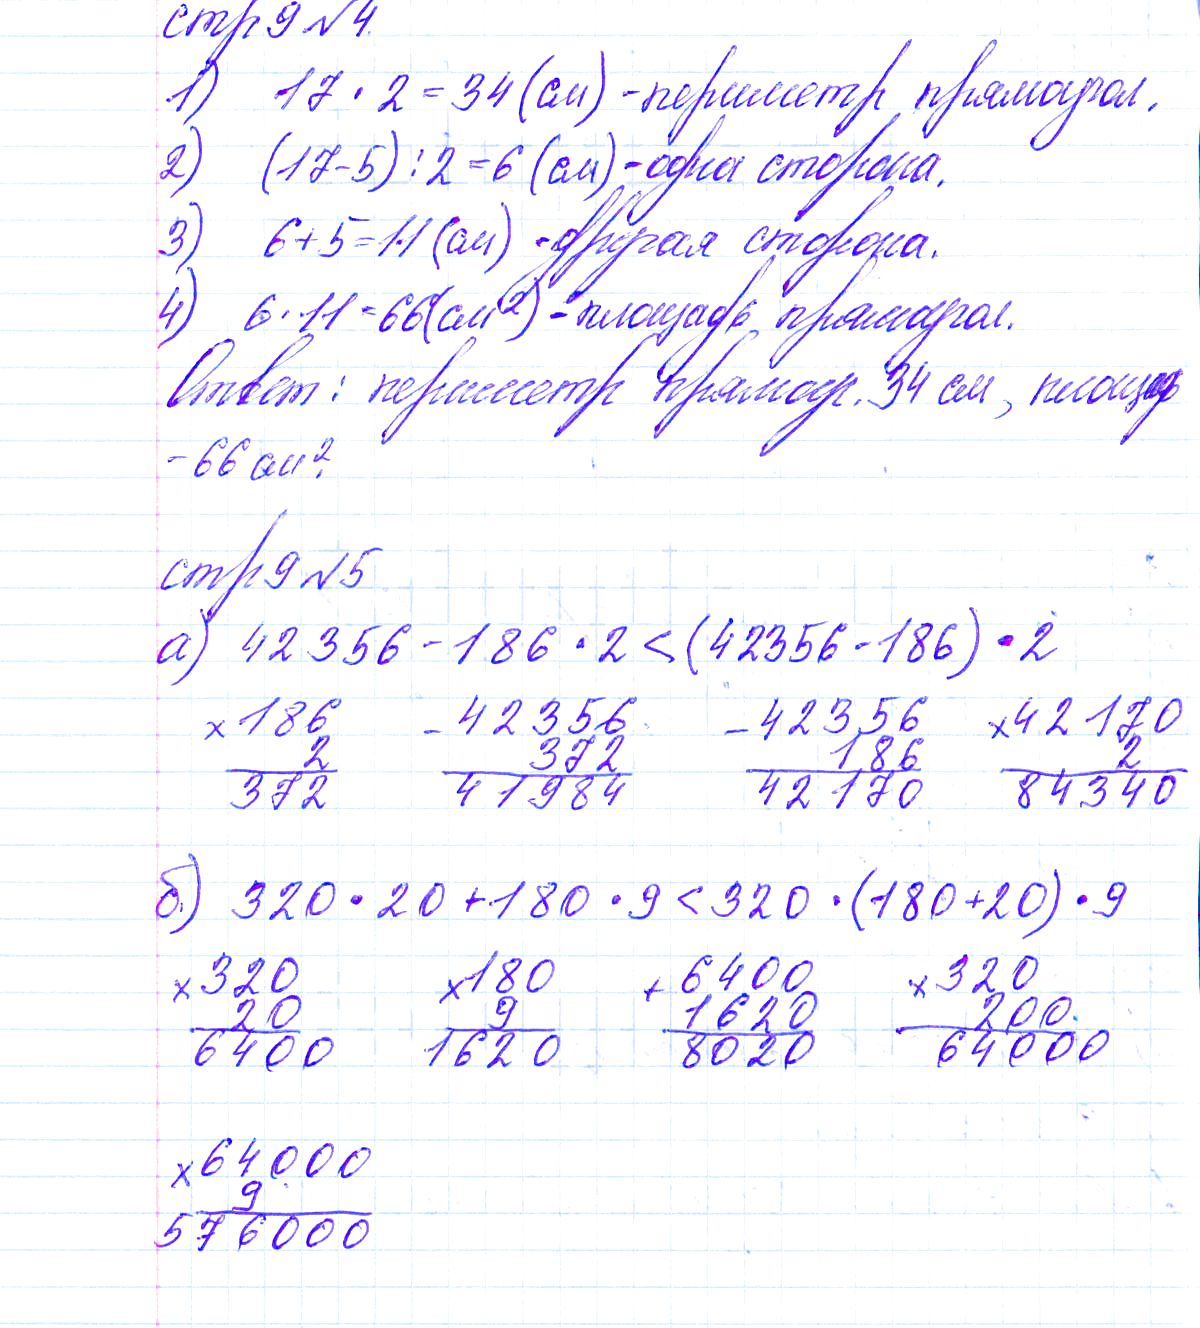 стр 9 №4
1) 17 · 2 = 34 (см) - периметр прямоугол.
2) (17-5) : 2 = 6 (см) - одна сторона.
3) 6+5=11 (см) - другая сторона.
4) 6 · 11 = 66 (см²) - площадь прямоугол.
Ответ: периметр прямоуг. 34 см, площадь
- 66 см².
стр 9 №5
а) 42356 - 186 · 2 < (42356 - 186) · 2
× 186 - 42356 - 42356 × 42170
2 372 186 2
372 41984 42170 84340
б) 320 · 20 + 180 · 9 < 320 · (180+20) · 9
× 320 × 180 + 6400 × 320
20 9 1620 200
6400 1620 8020 64000
× 64000
9
576000